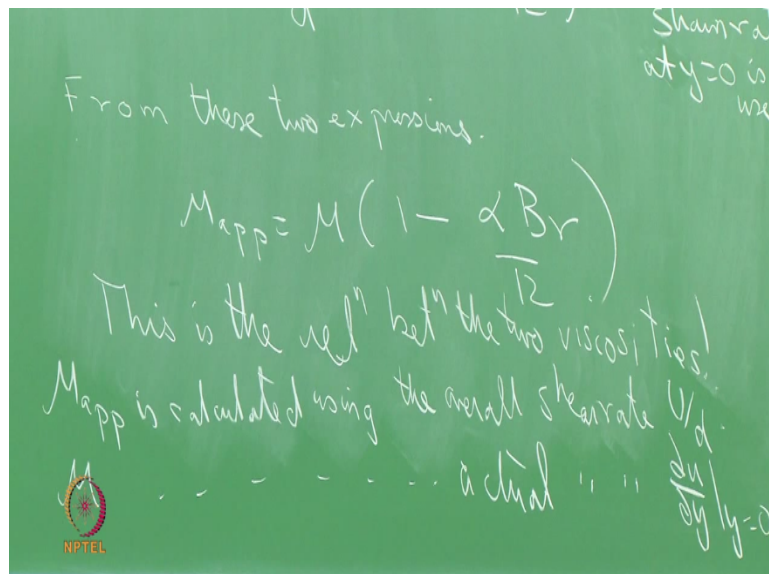 d
Shear ra
at y=0 is
use
From these two expressions.
μapp = μ(1 - αBr/12)
This is the relⁿ betⁿ the two viscosities!
μapp is calculated using the overall shear rate U/d.
μ . - - - - . . . actual " " du/dy|y=0
NPTEL